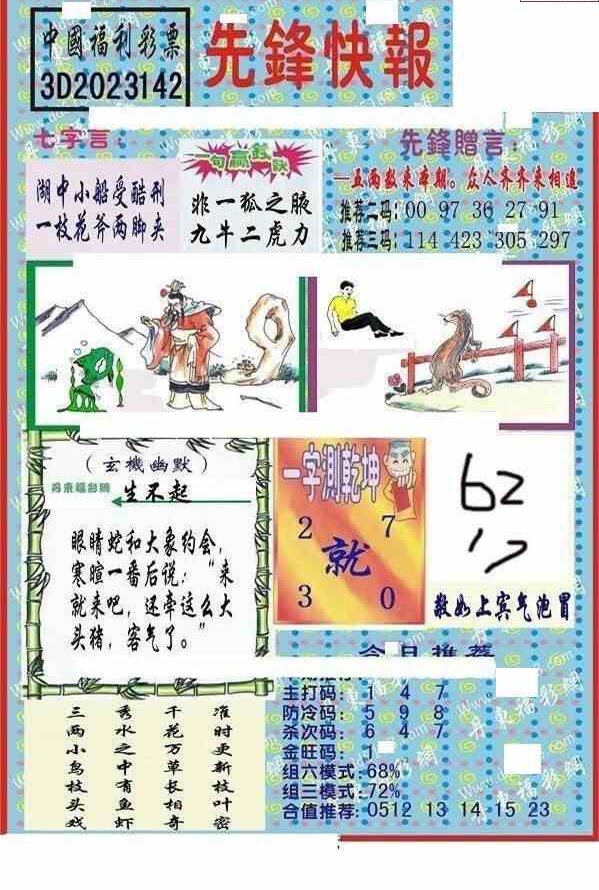 中國福利彩票
3D2023142
先鋒快報
七字言：
湖中小船受酷刑
一枝花斧两脚夹
一句赢钱诀
非一狐之腋
九牛二虎力
先鋒贈言：
一五两数来本期。众人齐齐来相追
推荐二码：00 97 36 27 91
推荐三码：114 423 305 297
（玄機幽默）
丹東福彩網
生不起
眼睛蛇和大象约会，
寒暄一番后说：“来
就来吧，还牵这么大
头猪，客气了。”
一字測乾坤
2 7
就
3 0
62
17
敬如上宾气泡冒
今日推荐
主打码：1 4 7
防冷码：5 9 8
杀次码：6 4 7
金旺码：1
组六模式：68%
组三模式：72%
合值推荐：0512 13 14 15 23
准时更新枝叶密
千花万草长相奇
秀水之中有鱼虾
三两小鸟枝头戏
丹東福彩網